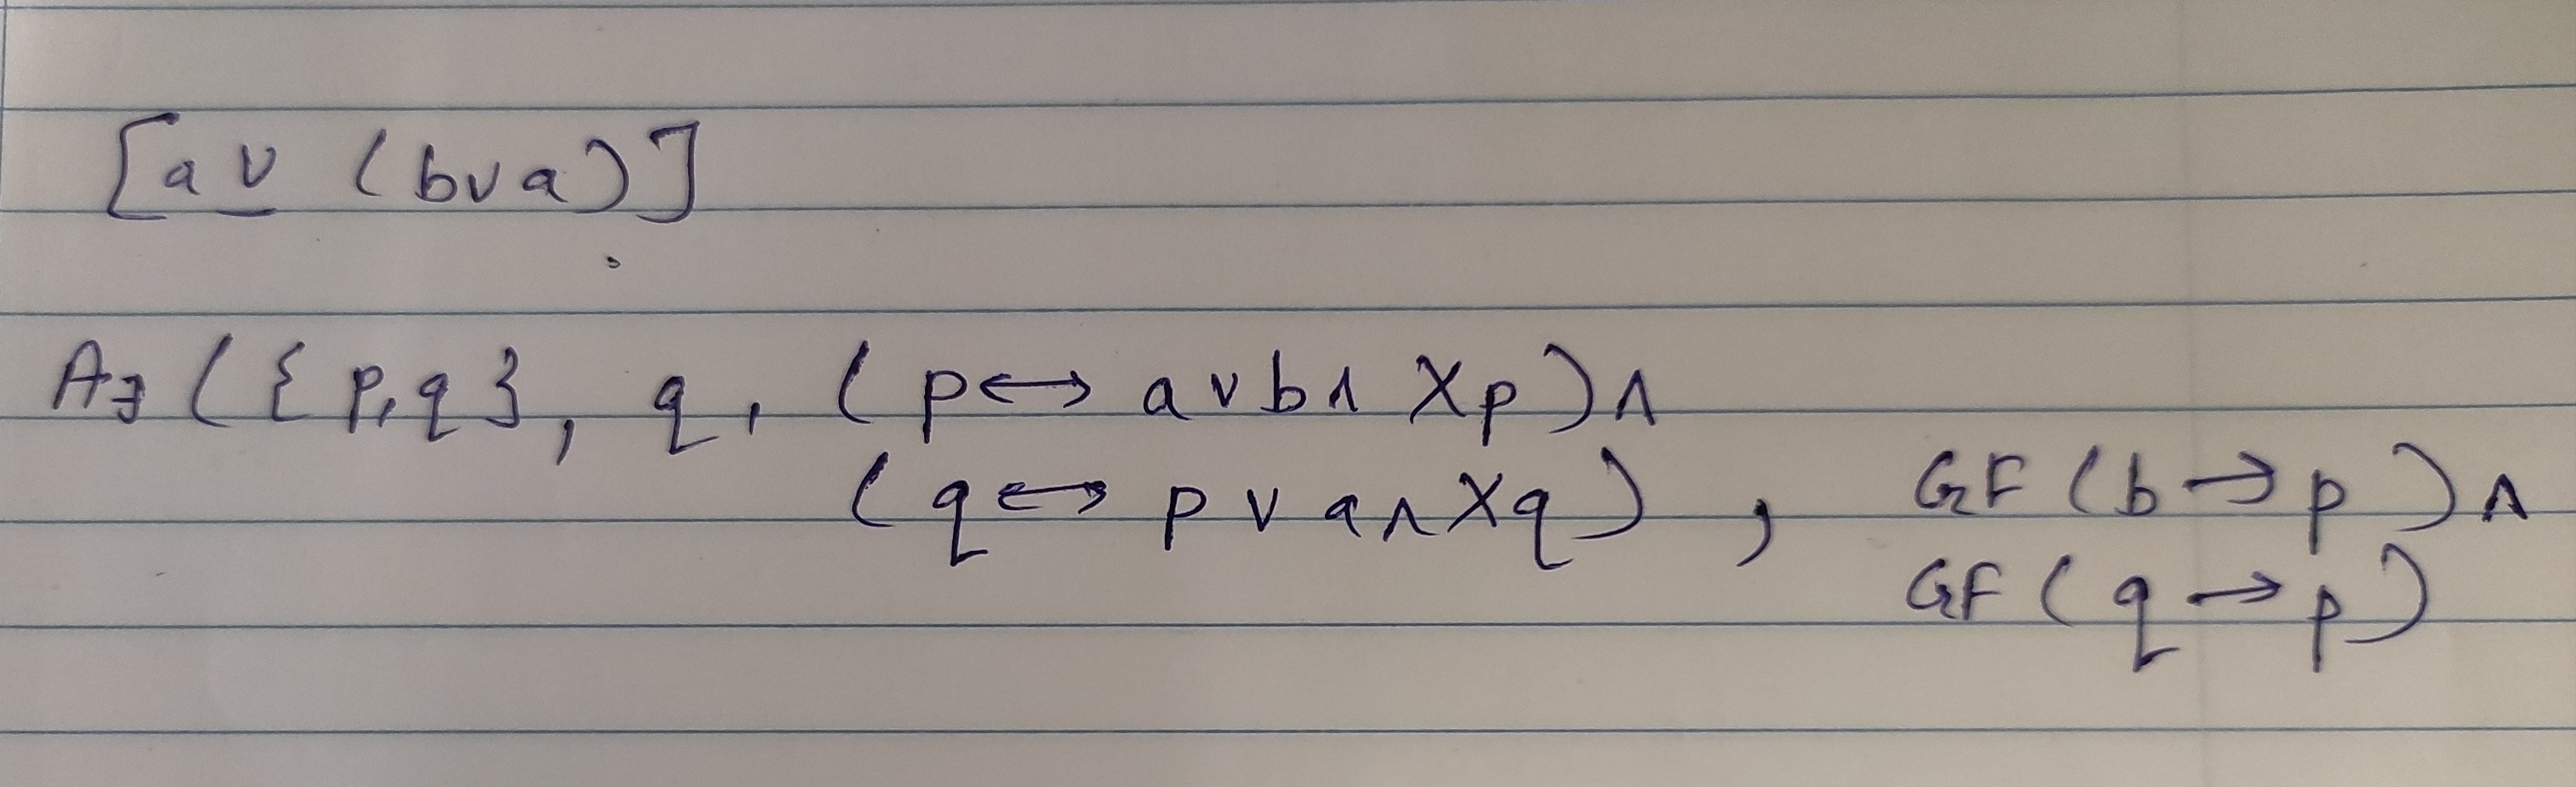 [a U̲ (b∪a)]
A∃ ({p,q}, q, (p↔a∨b∧Xp)∧
(q↔p∨a∧Xq), GF(b→p)∧
GF(q→p)